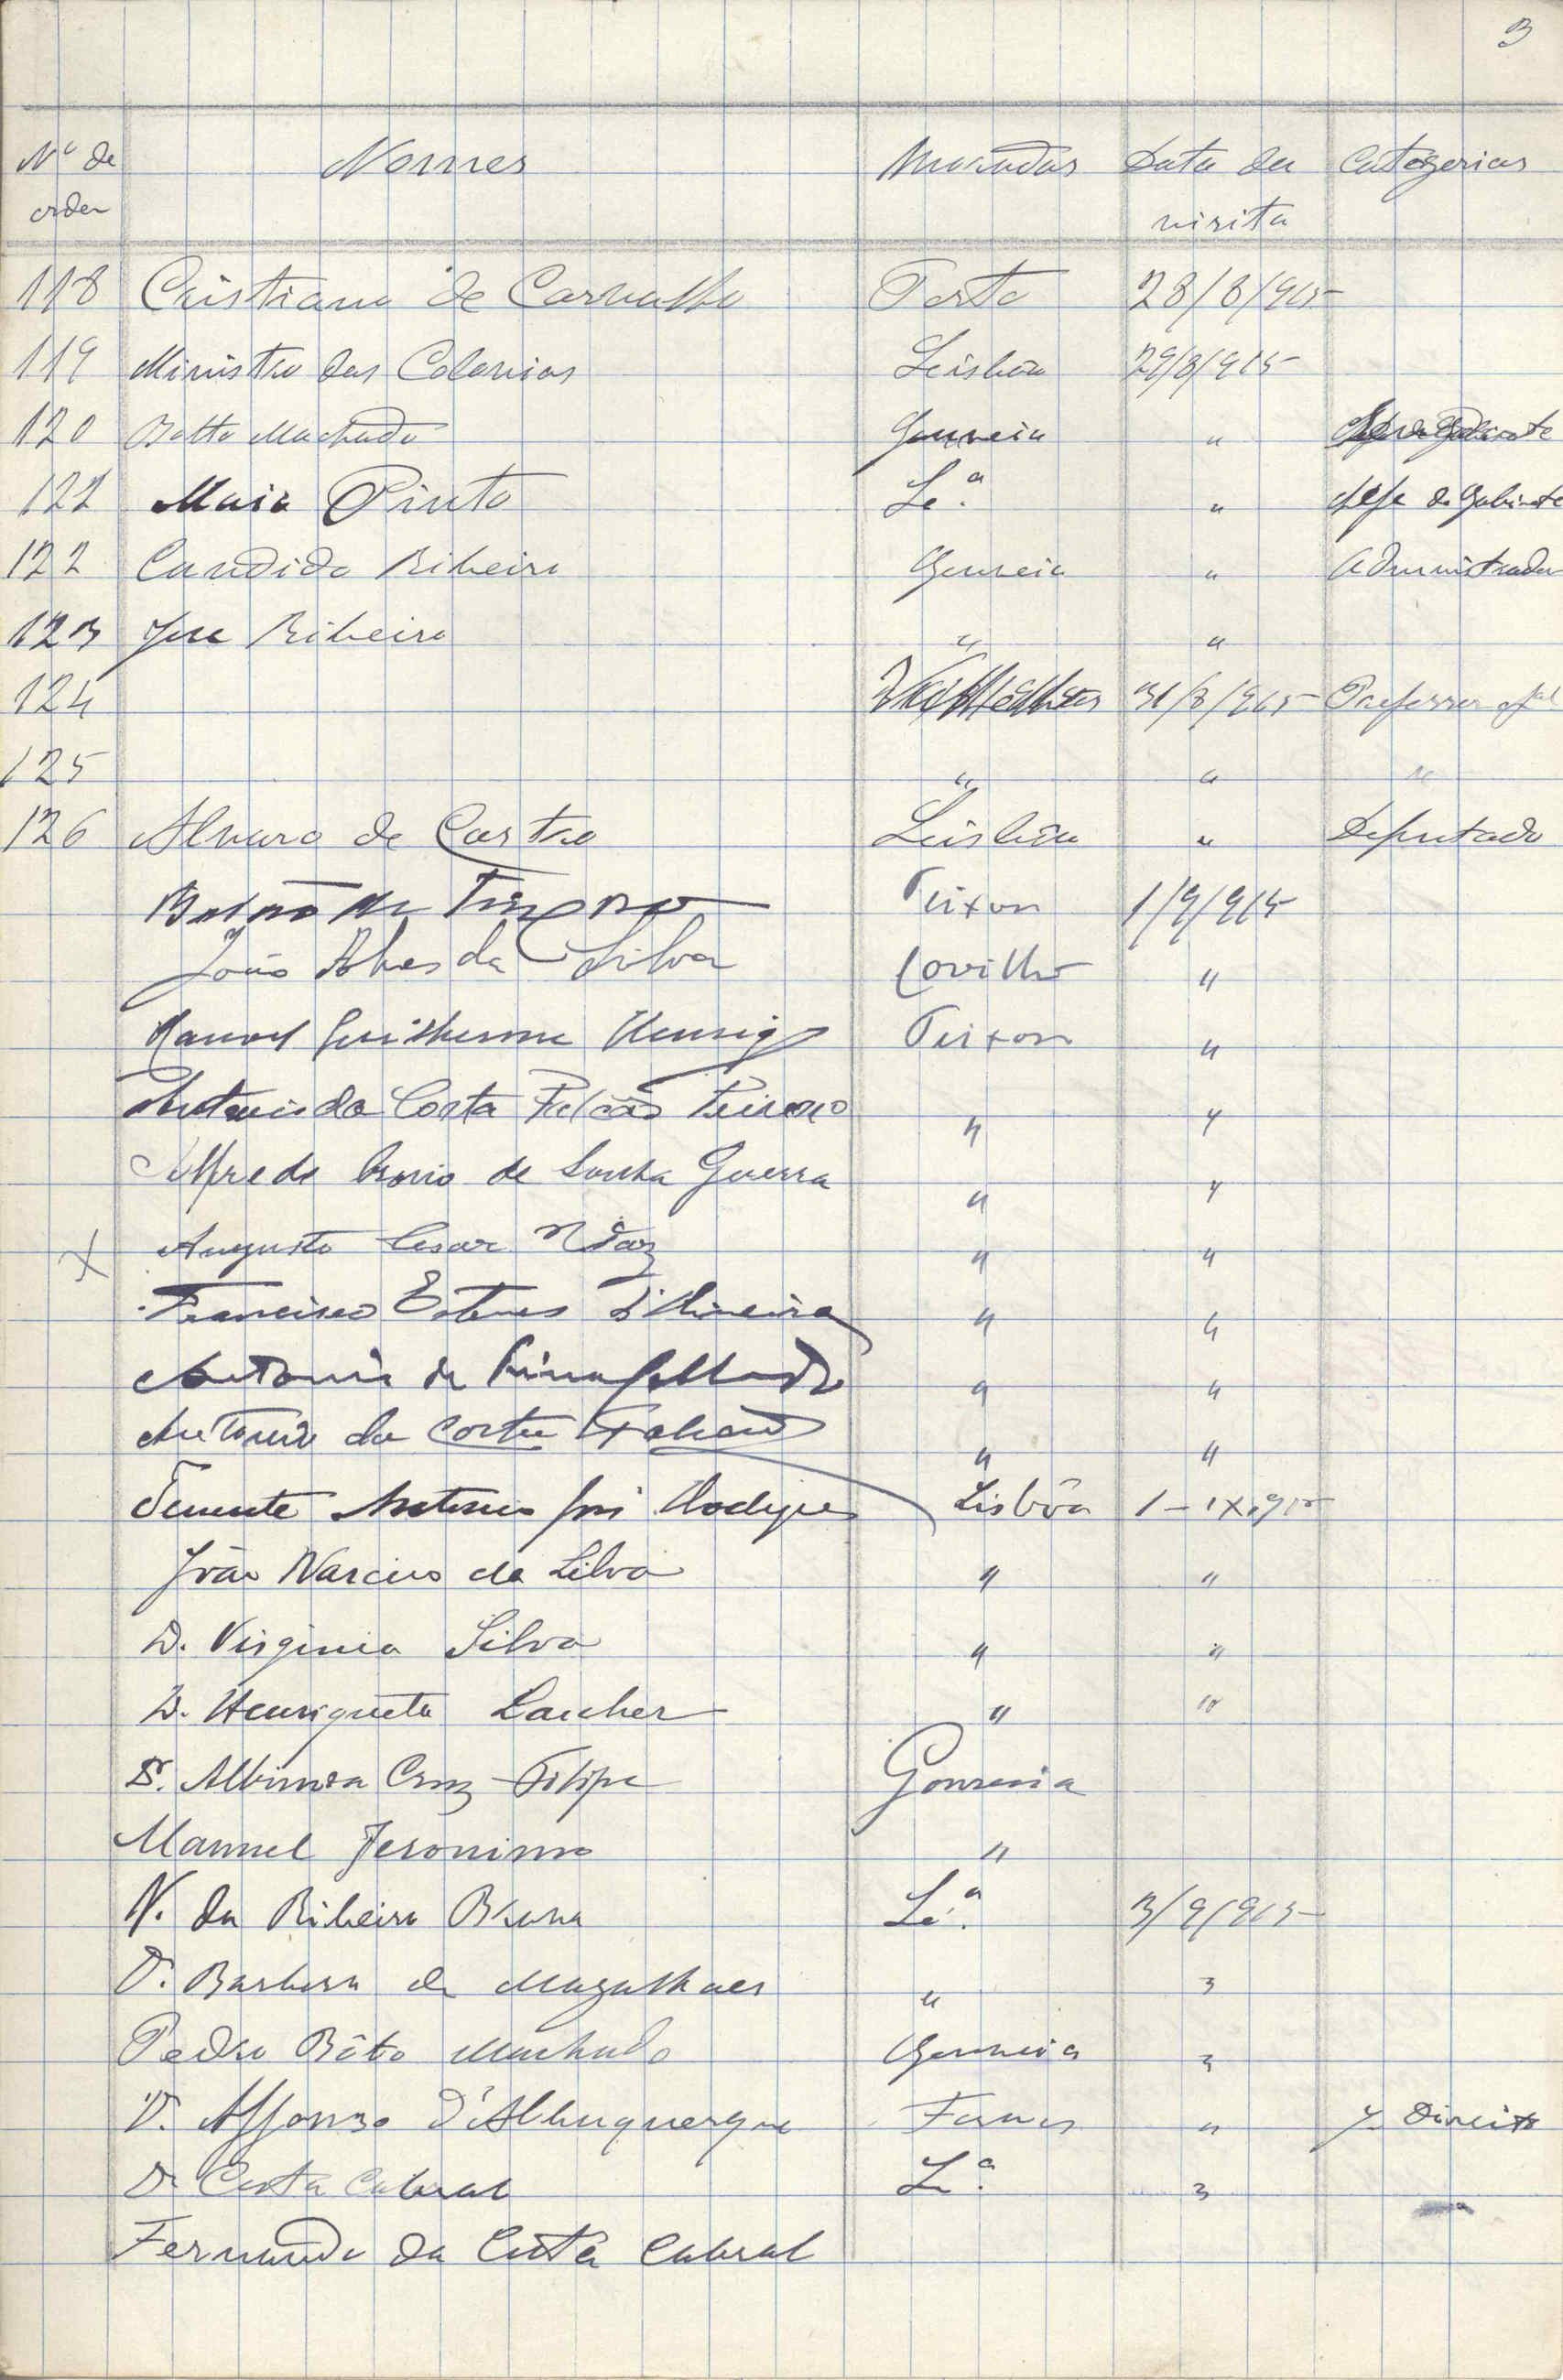 3
Nº de ordem Nomes Moradas Data da visita Categorias
118 Cristiano de Carvalho Porto 28/8/915
119 Ministro das Colonias Lisbôa 29/8/915
120 Botto Machado Gouveia "
121 Maia Pinto Lx.ª " Chefe de Gabinete
122 Candido Ribeiro Gouveia " Administrador
123 José Ribeiro " "
124 31/8/915 Professor
125 " " "
126 Alvaro de Castro Lisbôa " Deputado
Barão de 1/9/915
João Alves da Silva Covilhã "
Manoel Guilherme "
Antonio da Costa Falcão " "
Alfredo de Souza Guerra " "
X Augusto Cesar " "
Francisco Esteves d'Oliveira " "
Antonio de " "
Antonio da Costa Falcão " "
Tenente Antonio José Rodrigues Lisbôa 1-IX-915
João Narciso da Silva " "
D. Virginia Silva " "
D. Henriqueta Larcher " "
D. Albimira Cruz Filipe Gouveia
Manuel Jeronimo "
N. da Ribeira Brava Lx.ª 3/9/915
D. Barbosa de Magalhaes " "
Pedro Bôto Machado Gouveia "
D. Affonso d'Albuquerque " Direito
Dr Costa Cabral Lx.ª "
Fernando da Costa Cabral